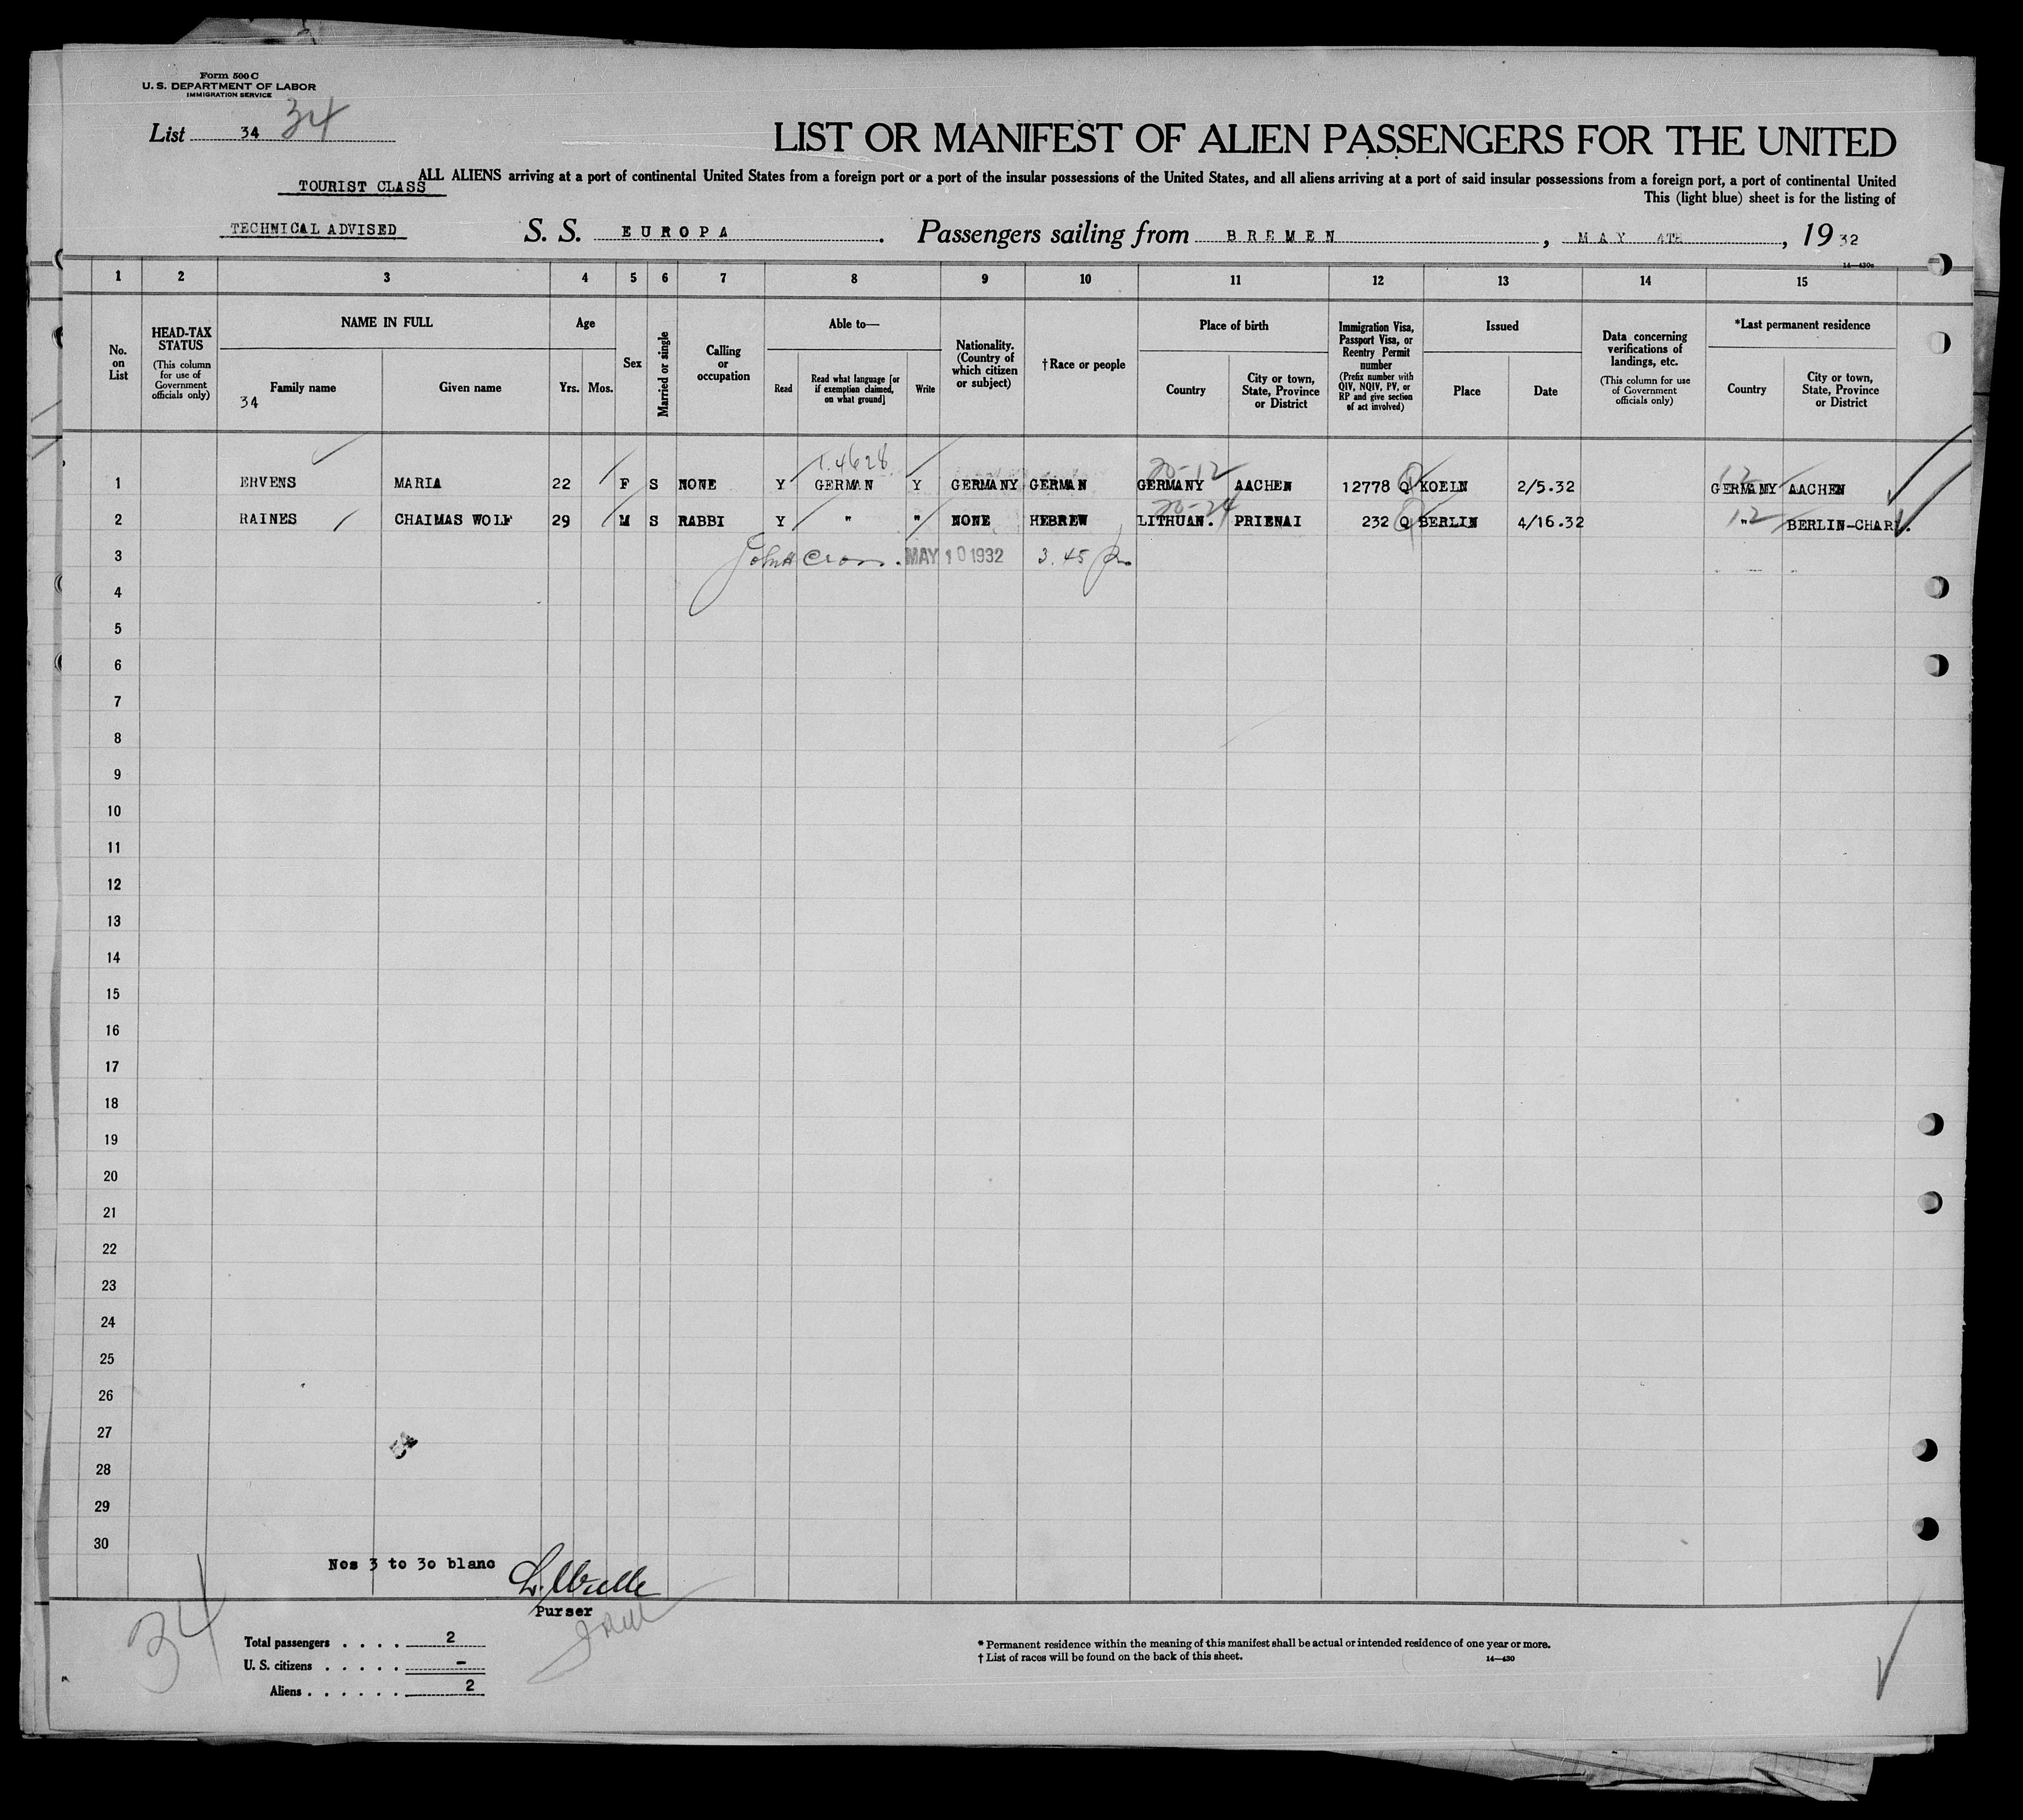 Form 500 C
U. S. DEPARTMENT OF LABOR
IMMIGRATION SERVICE
List 34 34
LIST OR MANIFEST OF ALIEN PASSENGERS FOR THE UNITED
ALL ALIENS arriving at a port of continental United States from a foreign port or a port of the insular possessions of the United States, and all aliens arriving at a port of said insular possessions from a foreign port, a port of continental United
TOURIST CLASS
This (light blue) sheet is for the listing of
TECHNICAL ADVISED S. S. EUROPA. Passengers sailing from BREMEN, MAY 4TH, 19 32
14—430c
1 2 3 4 5 6 7 8 9 10 11 12 13 14 15
No. on List
HEAD-TAX STATUS (This column for use of Government officials only)
NAME IN FULL
Family name
Given name
34
Age
Yrs. Mos.
Sex
Married or single
Calling or occupation
Able to—
Read
Read what language [or if exemption claimed, on what ground]
Write
Nationality. (Country of which citizen or subject)
†Race or people
Place of birth
Country
City or town, State, Province or District
Immigration Visa, Passport Visa, or Reentry Permit number (Prefix number with QIV, NQIV, PV, or RP and give section of act involved)
Issued
Place
Date
Data concerning verifications of landings, etc. (This column for use of Government officials only)
*Last permanent residence
Country
City or town, State, Province or District
20-12 12
1 ERVENS MARIA 22 F S NONE Y GERMAN Y GERMANY GERMAN GERMANY AACHEN 12778 Q KOELN 2/5.32 GERMANY AACHEN
20-24 12
2 RAINES CHAIMAS WOLF 29 M S RABBI Y " " NONE HEBREW LITHUAN. PRIENAI 232 Q BERLIN 4/16.32 " BERLIN-CHARL.
3 MAY 10 1932 3.45
4
5
6
7
8
9
10
11
12
13
14
15
16
17
18
19
20
21
22
23
24
25
26
27
28
29
30
Nos 3 to 30 blanc
Purser
34
Total passengers . . . . 2
U. S. citizens . . . . . –
Aliens . . . . . . 2
* Permanent residence within the meaning of this manifest shall be actual or intended residence of one year or more.
† List of races will be found on the back of this sheet.
14—430